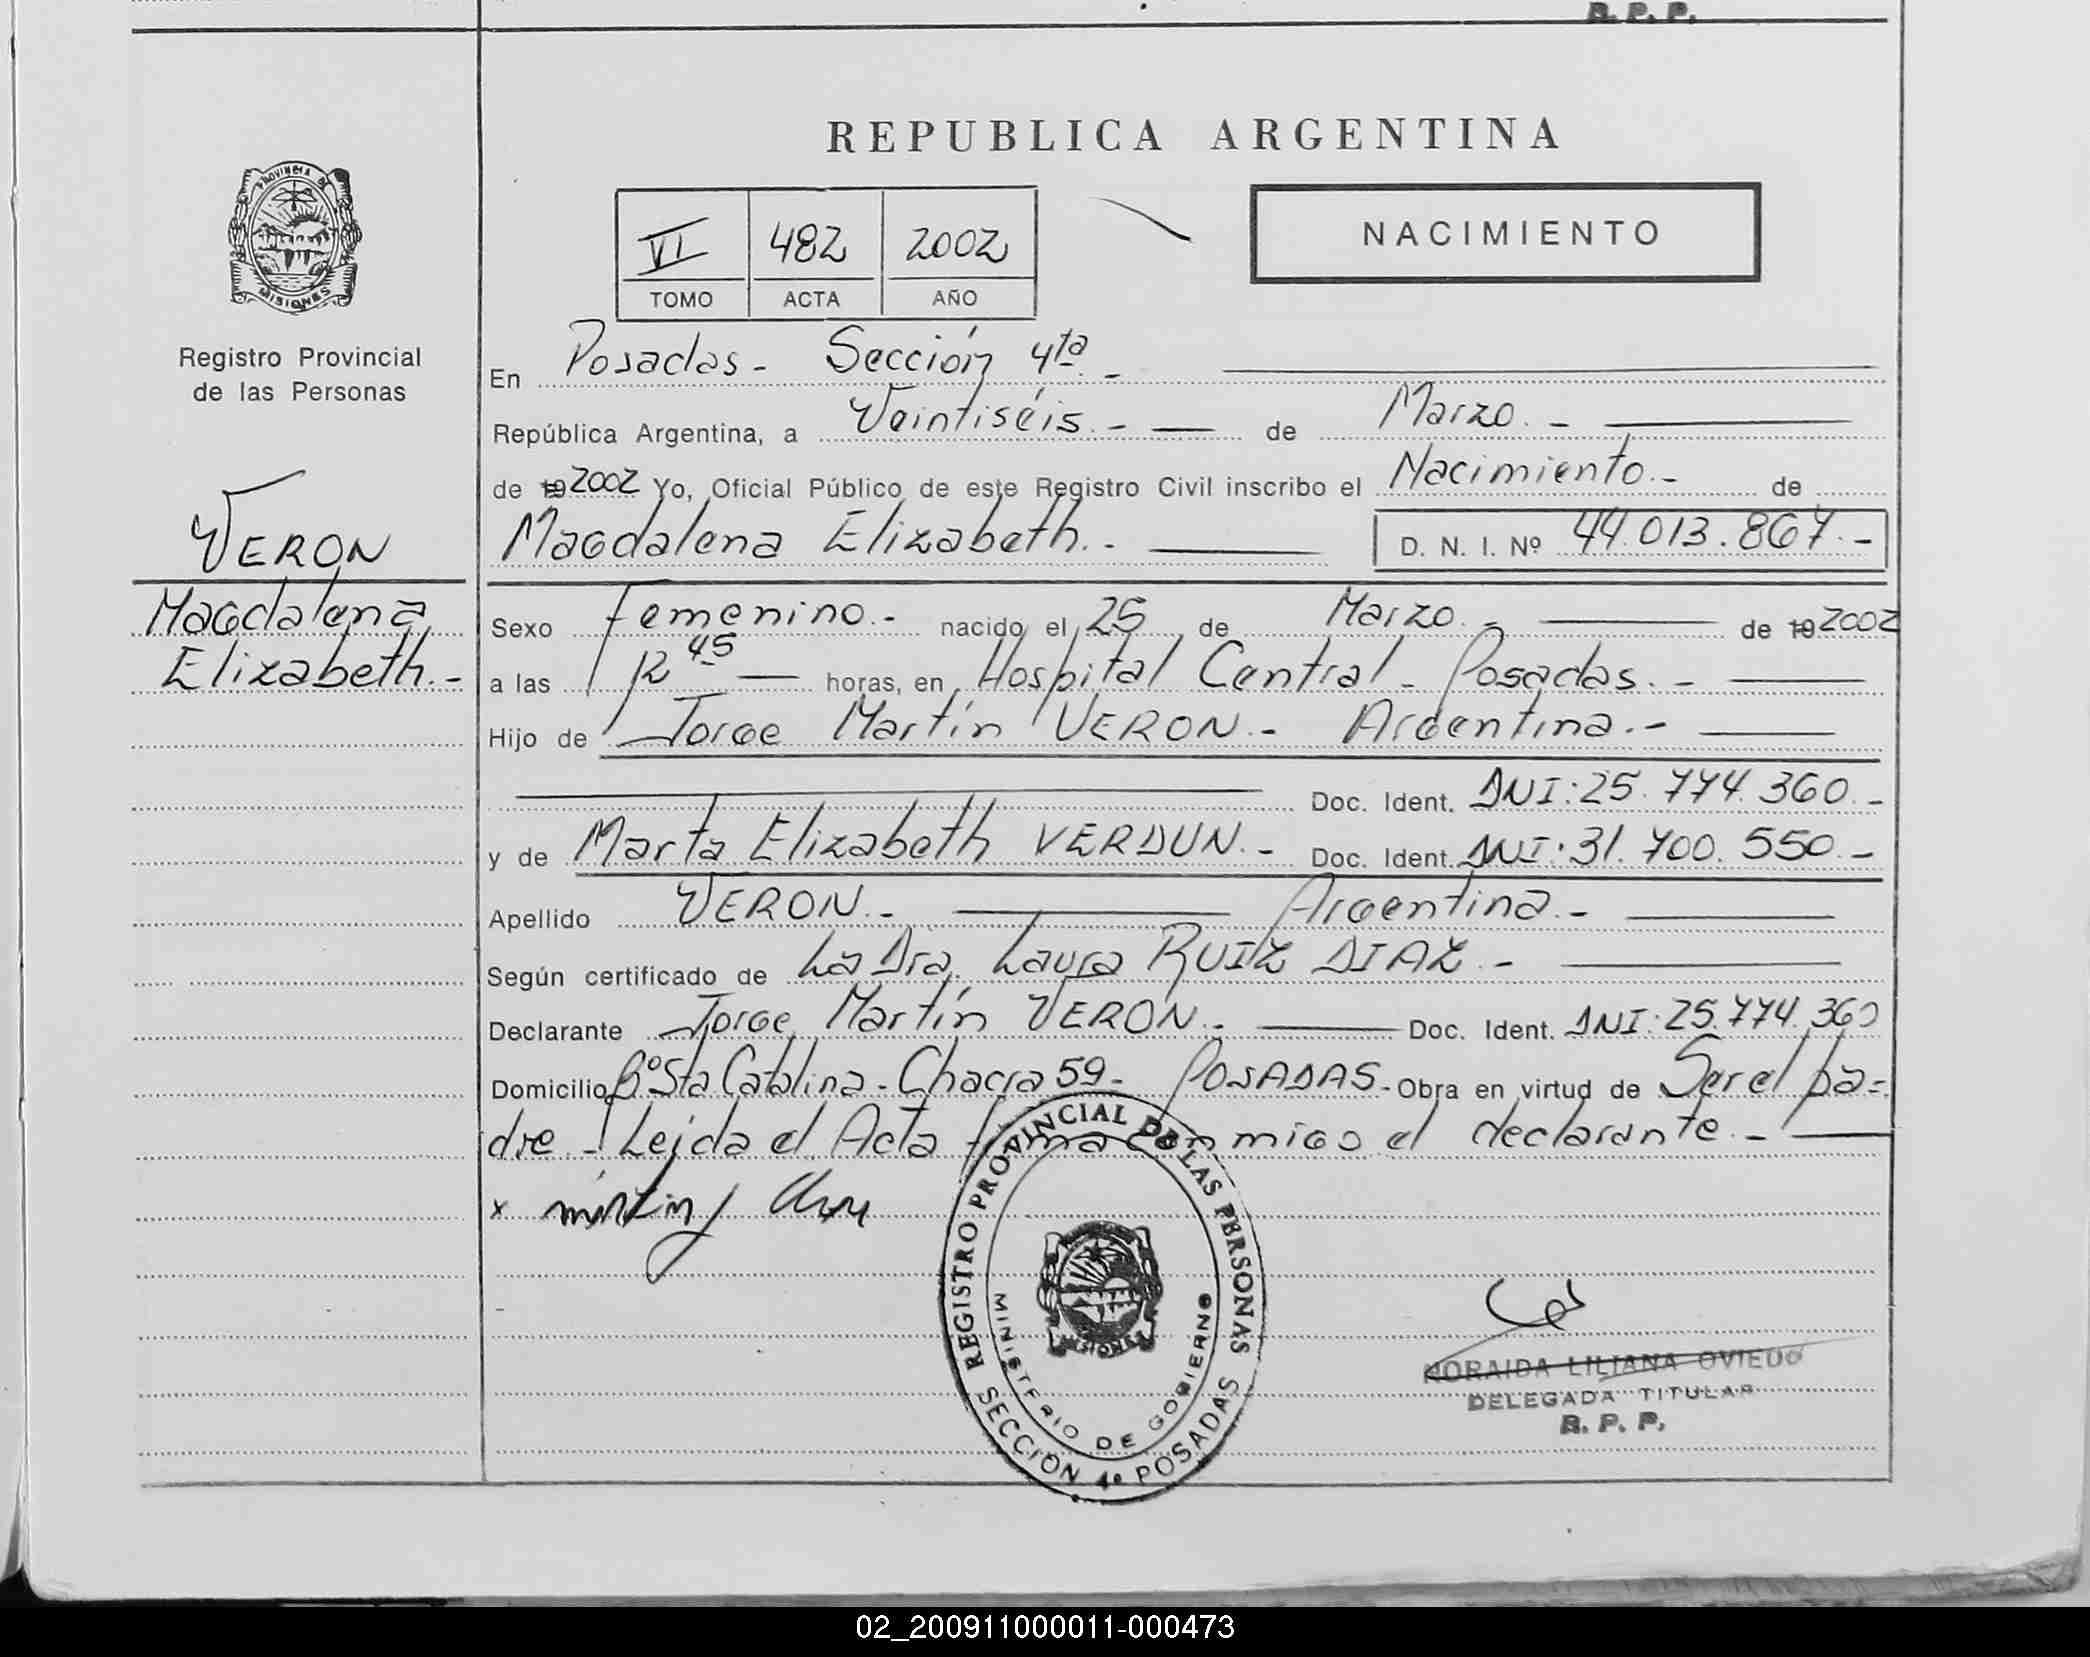 R. P. P.
REPUBLICA ARGENTINA
PROVINCIA DE
MISIONES
Registro Provincial
de las Personas
VI 482 2002
TOMO ACTA AÑO
NACIMIENTO
En Posadas - Sección 4ta. -
República Argentina, a Veintiséis. - de Marzo. -
de 19 2002 Yo, Oficial Público de este Registro Civil inscribo el Nacimiento. - de
Magdalena Elizabeth. - D. N. I. Nº 44.013.867. -
VERON
Magdalena
Elizabeth. -
Sexo Femenino. - nacido el 25 de Marzo. - de 19 2002
a las 12 45 horas, en Hospital Central - Posadas. -
Hijo de Jorge Martín VERON. - Argentina. -
Doc. Ident. DNI: 25.774.360. -
y de Marta Elizabeth VERDUN. - Doc. Ident. DNI: 31.700.550. -
Apellido VERON. - Argentina. -
Según certificado de La Dra. Laura RUIZ DIAZ. -
Declarante Jorge Martín VERON. - Doc. Ident. DNI: 25.774.360
Domicilio Bº Sta Catalina - Chacra 59 - POSADAS - Obra en virtud de Ser el pa-
dre. - Leída el Acta firma conmigo el declarante. -
x
REGISTRO PROVINCIAL DE LAS PERSONAS
MINISTERIO DE GOBIERNO
MISIONES
SECCION 4º POSADAS
NORAIDA LILIANA OVIEDO
DELEGADA TITULAR
R. P. P.
02_200911000011-000473